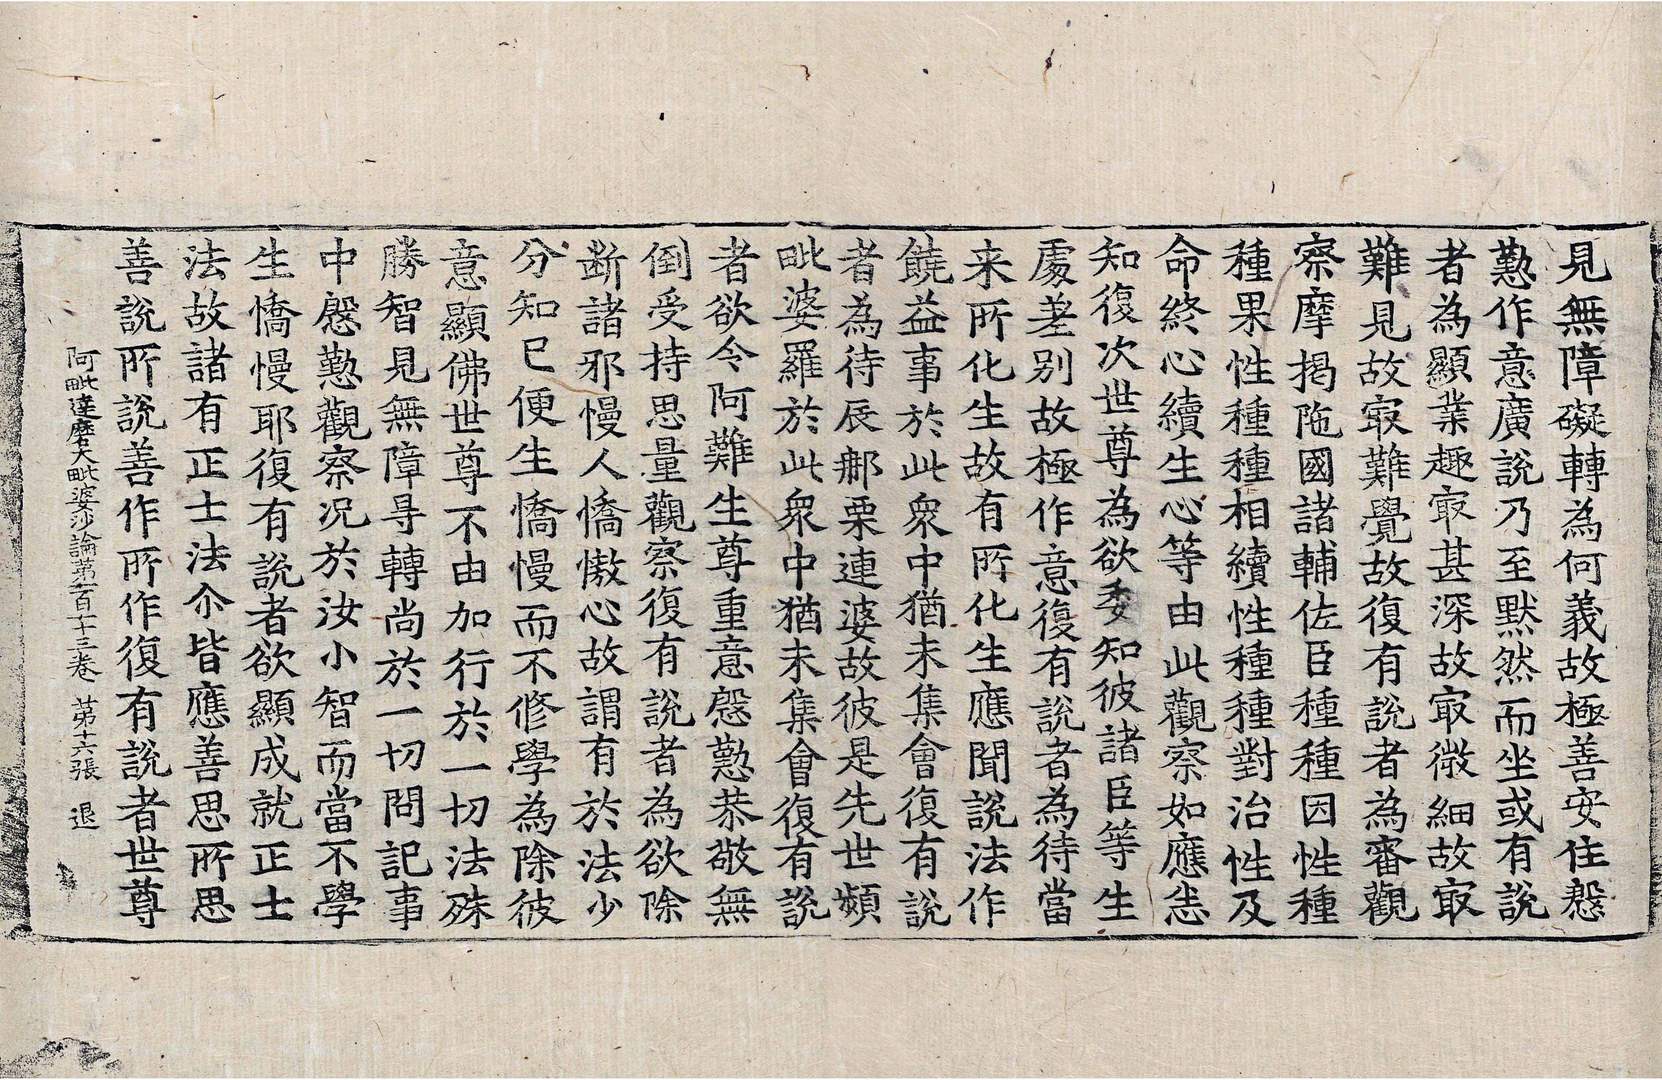 見無障礙轉為何義故極善安住慇
懃作意廣說乃至默然而坐或有說
者為顯業趣㝡甚深故㝡微細故㝡
難見故㝡難覺故復有說者為審觀
察摩揭陁國諸輔佐臣種種因性種
種果性種種相續性種種對治性及
命終心續生心等由此觀察如應悉
知復次世尊為欲委知彼諸臣等生
處差別故極作意復有說者為待當
来所化生故有所化生應聞說法作
饒益事於此衆中猶未集會復有說
者為待辰那栗連婆故彼是先世頻
毗婆羅於此衆中猶未集會復有說
者欲令阿難生尊重意慇懃恭敬無
倒受持思量觀察復有說者為欲除
斷諸邪慢人憍慠心故謂有於法少
分知已便生憍慢而不修學為除彼
意顯佛世尊不由加行於一切法殊
勝智見無障㝵轉尚於一切問記事
中慇懃觀察況於汝小智而當不學
生憍慢耶復有說者欲顯成就正士
法故諸有正士法尒皆應善思所思
善說所說善作所作復有說者世尊
阿毗達磨大毗婆沙論第一百一十三卷 第十六張 退